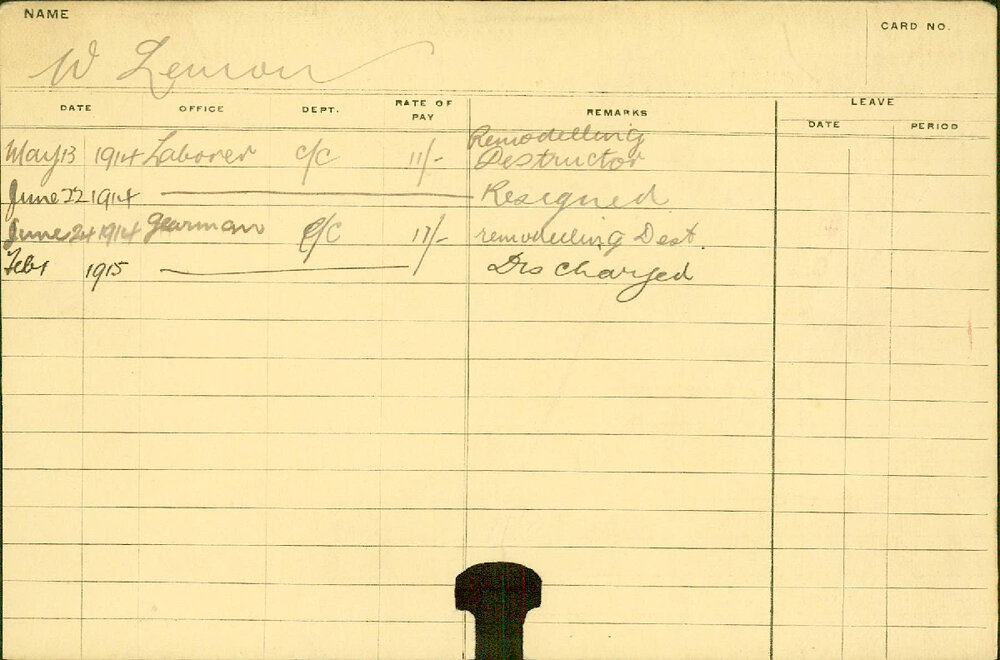 NAME
CARD NO.
W Lemon
DATE OFFICE DEPT. RATE OF PAY REMARKS LEAVE
DATE PERIOD
Remodelling
May 13 1914 Laborer C/C 11/- Destructor
June 22 1914 Resigned
June 24 1914 Gearman C/C 11/- remodelling Dest.
Feb 1 1915 Discharged